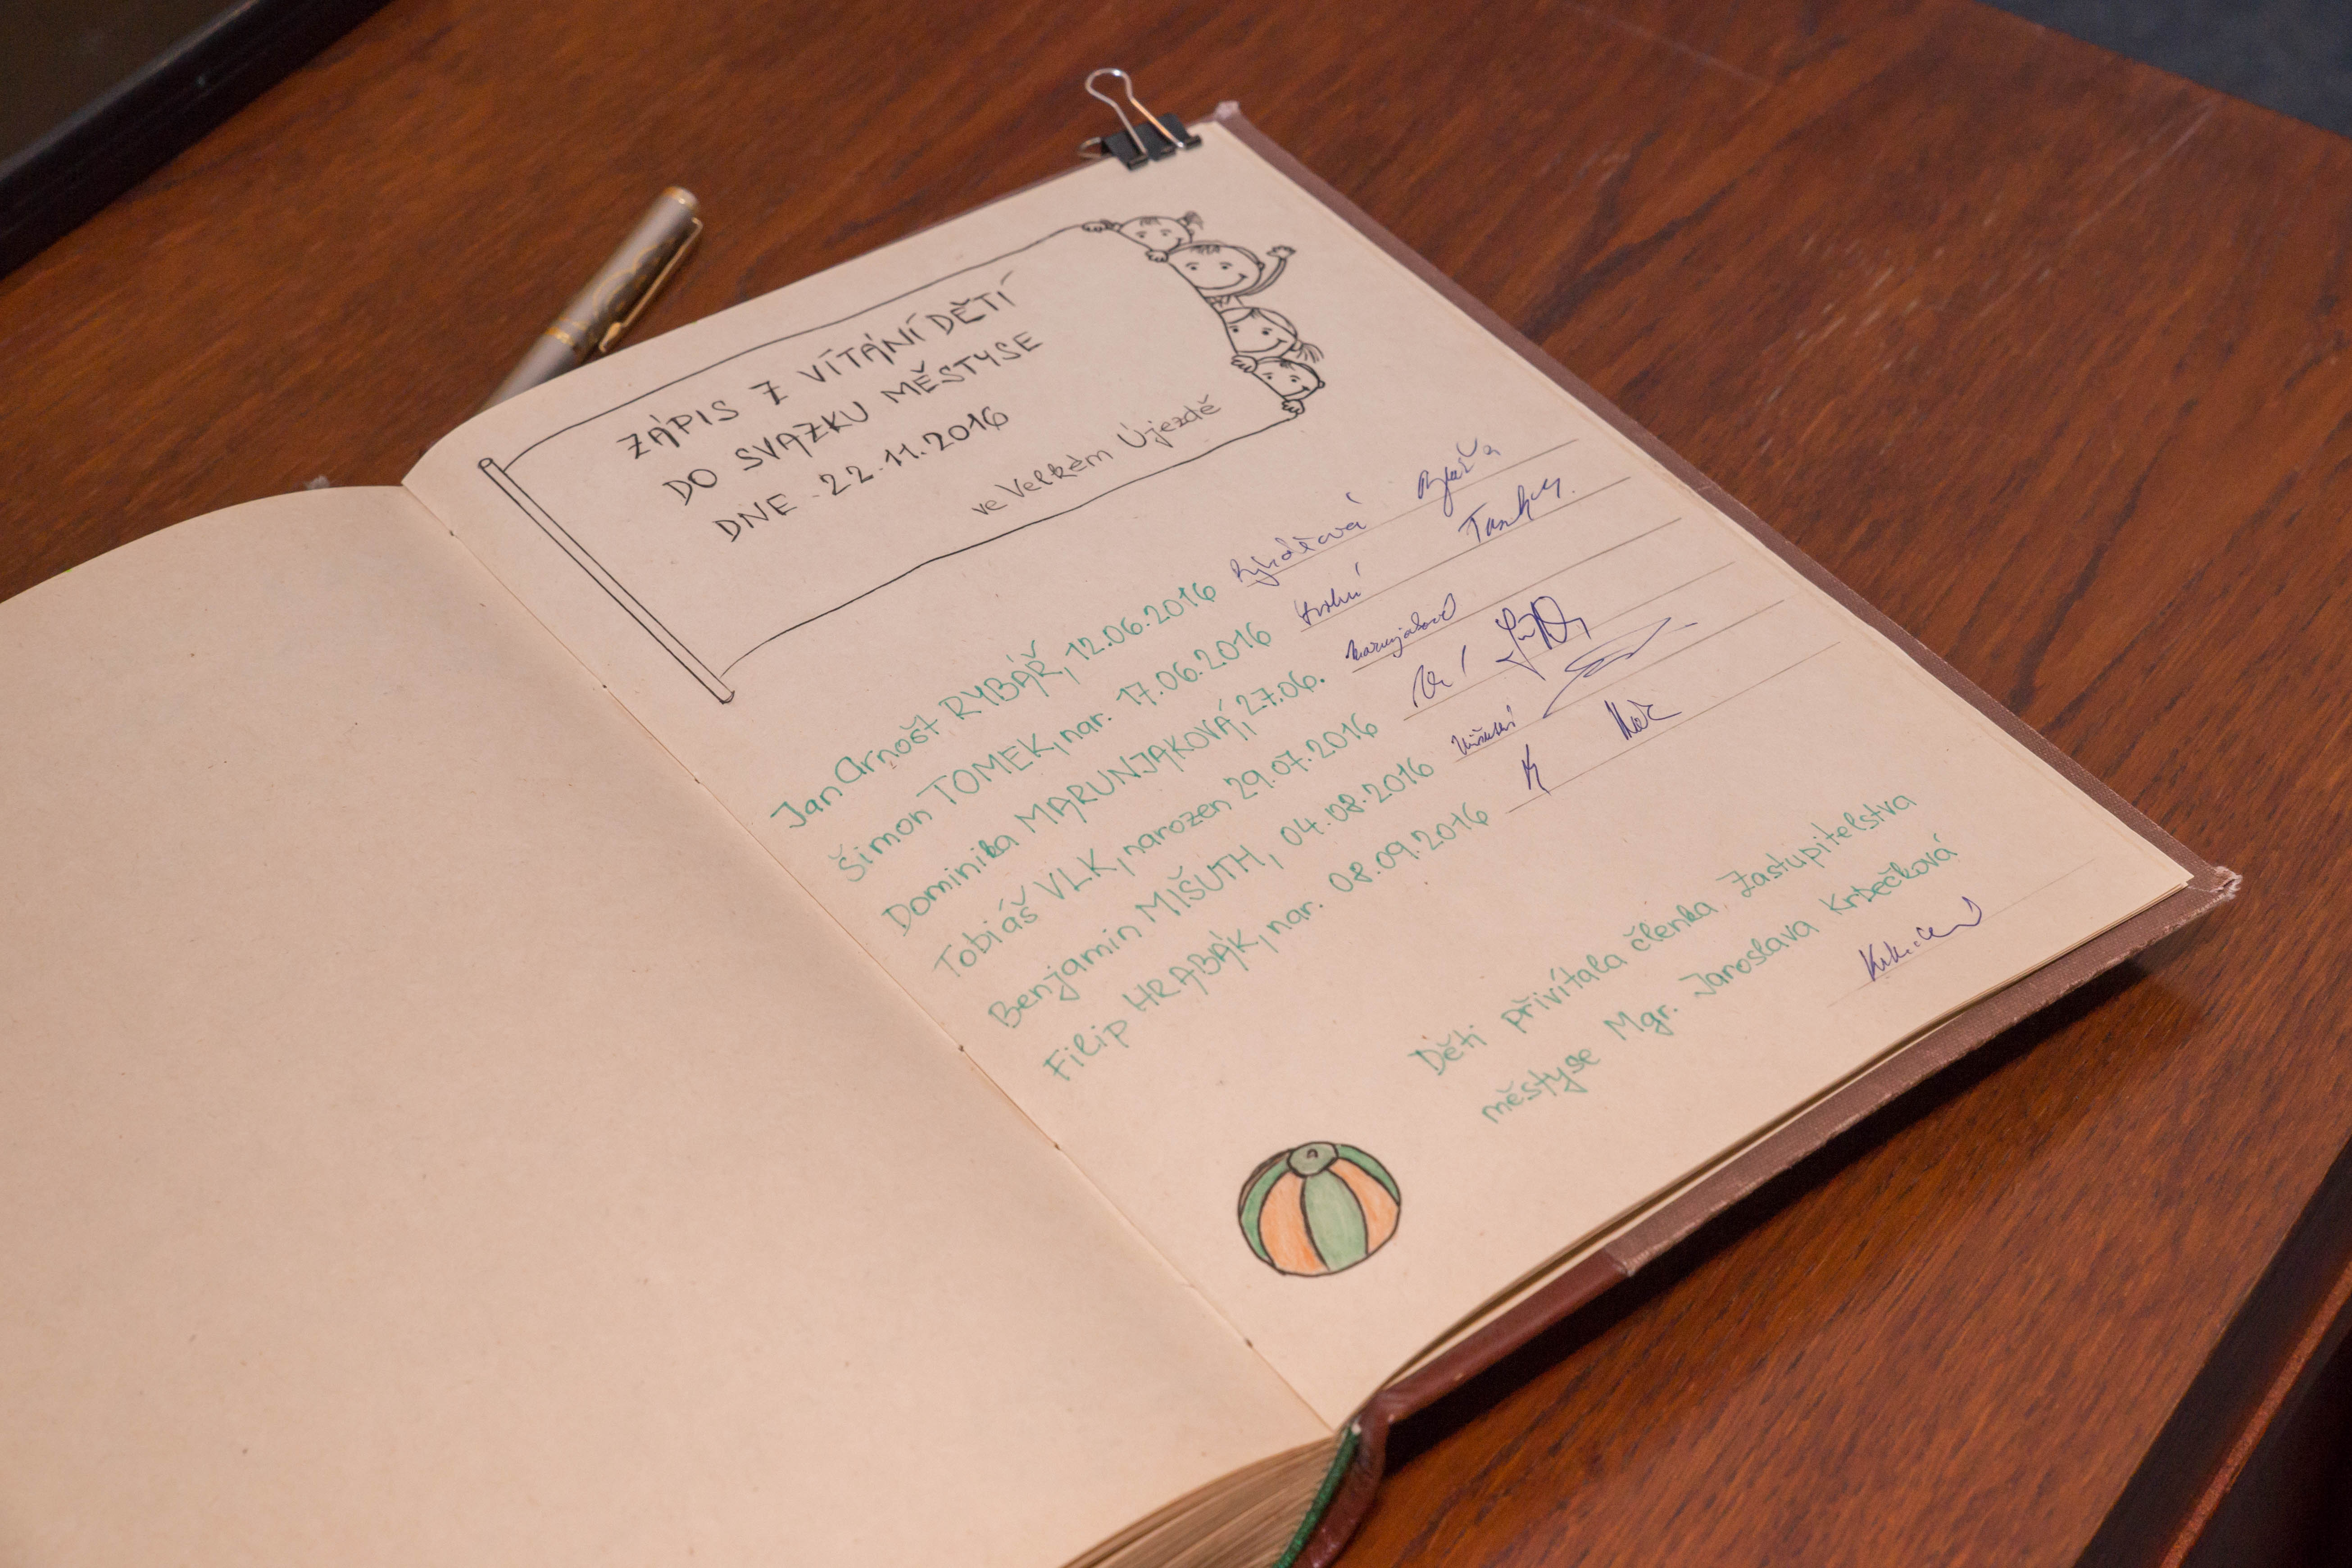 ZÁPIS Z VÍTÁNÍ DĚTÍ
DO SVAZKU MĚSTYSE
DNE 22.11.2016
ve Velkém Újezdě
Jan Arnošt RYBÁŘ, 12.06.2016
Šimon TOMEK, nar. 17.06.2016
Dominika MARUNJAKOVÁ, 27.06.
Tobiáš VLK, narozen 29.07.2016
Benjamin MIŠUTH, 04.08.2016
Filip HRABÁK, nar. 08.09.2016
Děti přivítala členka Zastupitelstva
městyse Mgr. Jaroslava Krbečková